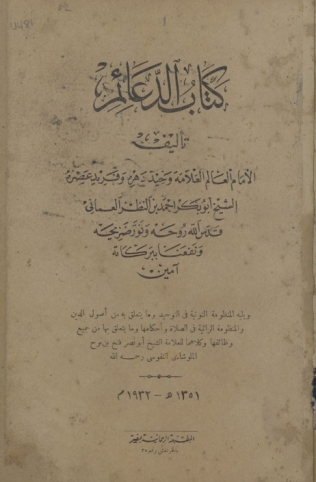 كتاب الدعائم
تأليف
الإمام العالم العلامة وحيد دهره وفريد عصره
الشيخ أبو بكر أحمد بن النظر العماني
قدس الله روحه ونور ضريحه
ونفعنا ببركاته
آمين
ويليه المنظومة النونية في التوحيد وما يتعلق به من أصول الدين
والمنظومة الرائية في الصلاة وأحكامها وما يتعلق بها من جميع
وظائفها وكلاهما للعلامة الشيخ أبو نصر فتح بن نوح
الملوشائي النفوسي رحمه الله
١٣٥١ هـ - ١٩٣٢ م
المطبعة الرحمانية بمصر